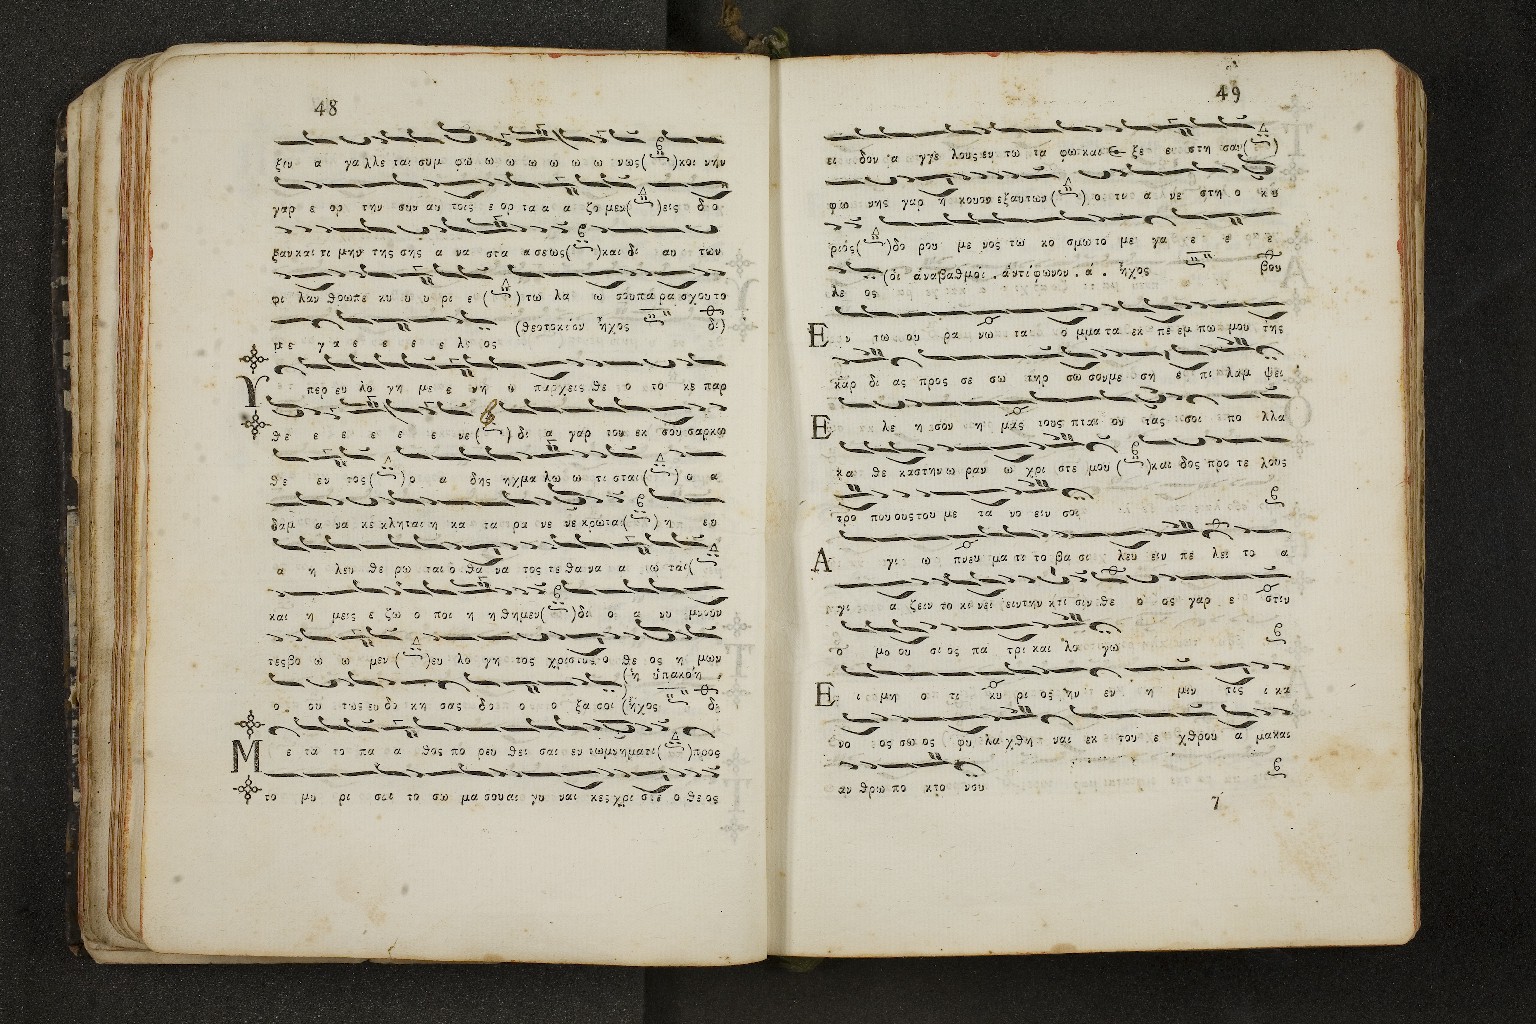 48
ξιν α γα λλε ται συμ φω ω ω ω ω ω ω νως( )και νην
γαρ ε ορ την συν αυ τοις ε ορ τα α α ζο μεν( )εις δο
ξαν και τι μην της σης α να στα α σεως( )και δι αυ των
φι λαν θρωπε κυ υ υ ρι ε ( ) τω λα ω σου πα ρα σχου το
(θεοτοκίον ἦχος δ)
με γα ε ε ε ε λε ος
Υ περ ευ λο γη με ε νη υ παρχεις θε ο το κε παρ
θε ε ε ε ε ε νε( ) δι α γαρ του εκ σου σαρκω
θε εν τος( )ο α δης ηχμα λω ω τι σται( ) ο α
δαμ α να κε κληται η κα τα ρα νε νε κρωται( ) η ευ
α η λευ θε ρω ται ο θα να τος τε θα να α τω ται(
και η μεις ε ζω ο ποι η η θημεν( )δι ο α νυ μνουν
τες βο ω ω μεν( )ευ λο γη τος χριστος ο θε ος η μων
(ἡ ὑπακοὴ
ο ου τως ευ δο κη σας δο ο ο ξα σοι (ἦχος δ
Μ ε τα το πα α θος πο ρευ θει σαι εν τω μνηματι( )προς
το μυ ρι σαι το σω μα σου αι γυ ναι κες χρι στε ο θε ος
49
ει δον α γγε λους εν τω τα φω και ε ξε ε στη σαν( )
φω νης γαρ η κουον εξ αυτων( ) ο τι α νε στη ο κυ
ριος( )δω ρου με νος τω κο σμω το με γα ε ε ε
(οἱ ἀναβαθμοί . ἀντίφωνον . ά . ἦχος βου
λε ος
Ε ν τω ου ρα νω τα ο μμα τα εκ πε εμ πω μου της
καρ δι ας προς σε σω τηρ σω σον με ση ε πι λαμ ψει
Ε λε η σον η μας τους πται ου τας σοι πο λλα
κα θε καστην ω ραν ω χρι στε μου ( )και δος προ τε λους
τρο πους του με τα νο ειν σοι
Α γι ω πνευ μα τι το βα σι λευ ειν πε λει το α
γι α ζειν το κι νει ειν την κτι σιν θε ο ος γαρ ε στιν
ο μο ου σι ος πα τρι και λο γω
Ε ι μη ο τι κυ ρι ος ην εν η μιν τις ι κα
νο ος σω ος φυ λα χθη ναι εκ του ε χθρου α μα και
αν θρω πο κτο νου
7